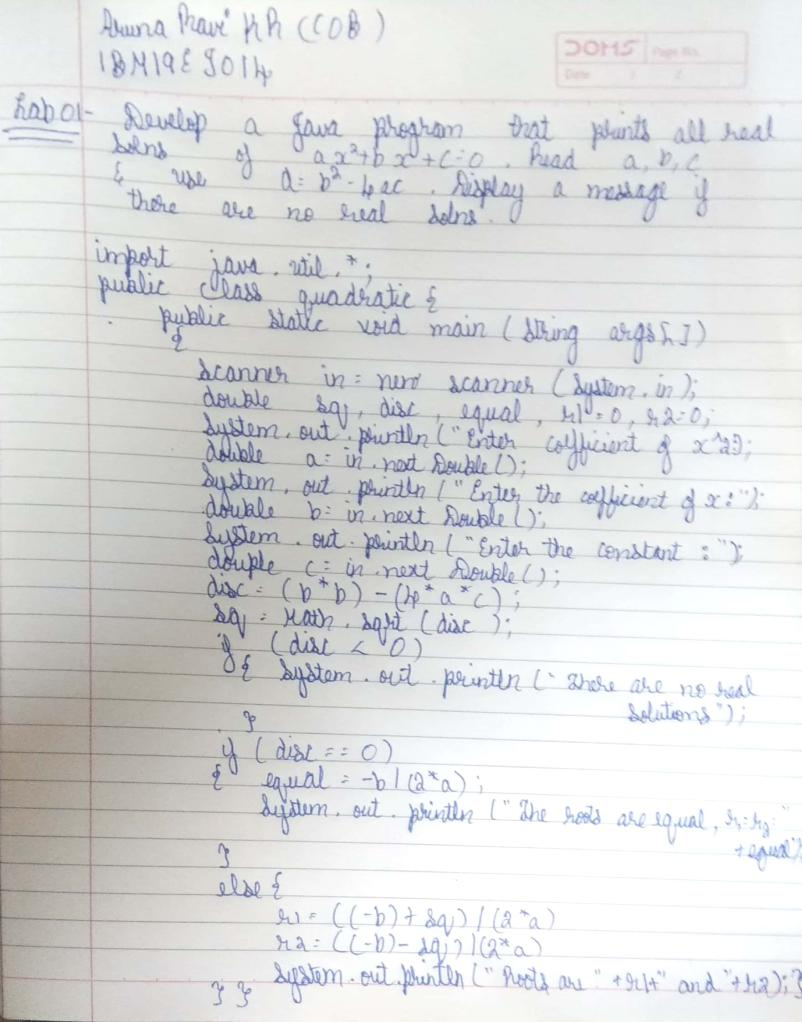 Aruna Pravi KR (COB)
1BM19EJ014
DOMS Page No.
Date / /
Lab 01- Develop a Java program that prints all real
solns of ax²+bx+c=0. Read a, b, c
& use d= b²-4ac. Display a message if
there are no real solns.
import java.util.*;
public class quadratic {
public static void main (String args[])
{
Scanner in = new scanner (System.in);
double sq, disc, equal, r1=0, r2=0;
System.out.println("Enter coefficient of x^2");
double a= in.next Double();
System.out.println("Enter the coefficient of x:");
double b= in.next Double();
System.out.println("Enter the constant :");
douple c= in.next Double();
disc= (b*b) - (4*a*c);
sq = Math.sqrt (disc);
if (disc < 0)
{ System.out.println (" There are no real
solutions");
}
if (disc == 0)
{ equal = -b/(2*a);
System.out.println ("The roots are equal, r1=r2="
+equal);
}
else {
r1 = ((-b)+sq)/(2*a)
r2= ((-b)-sq)/(2*a)
System.out.println ("Roots are "+r1+" and "+r2);}
} }